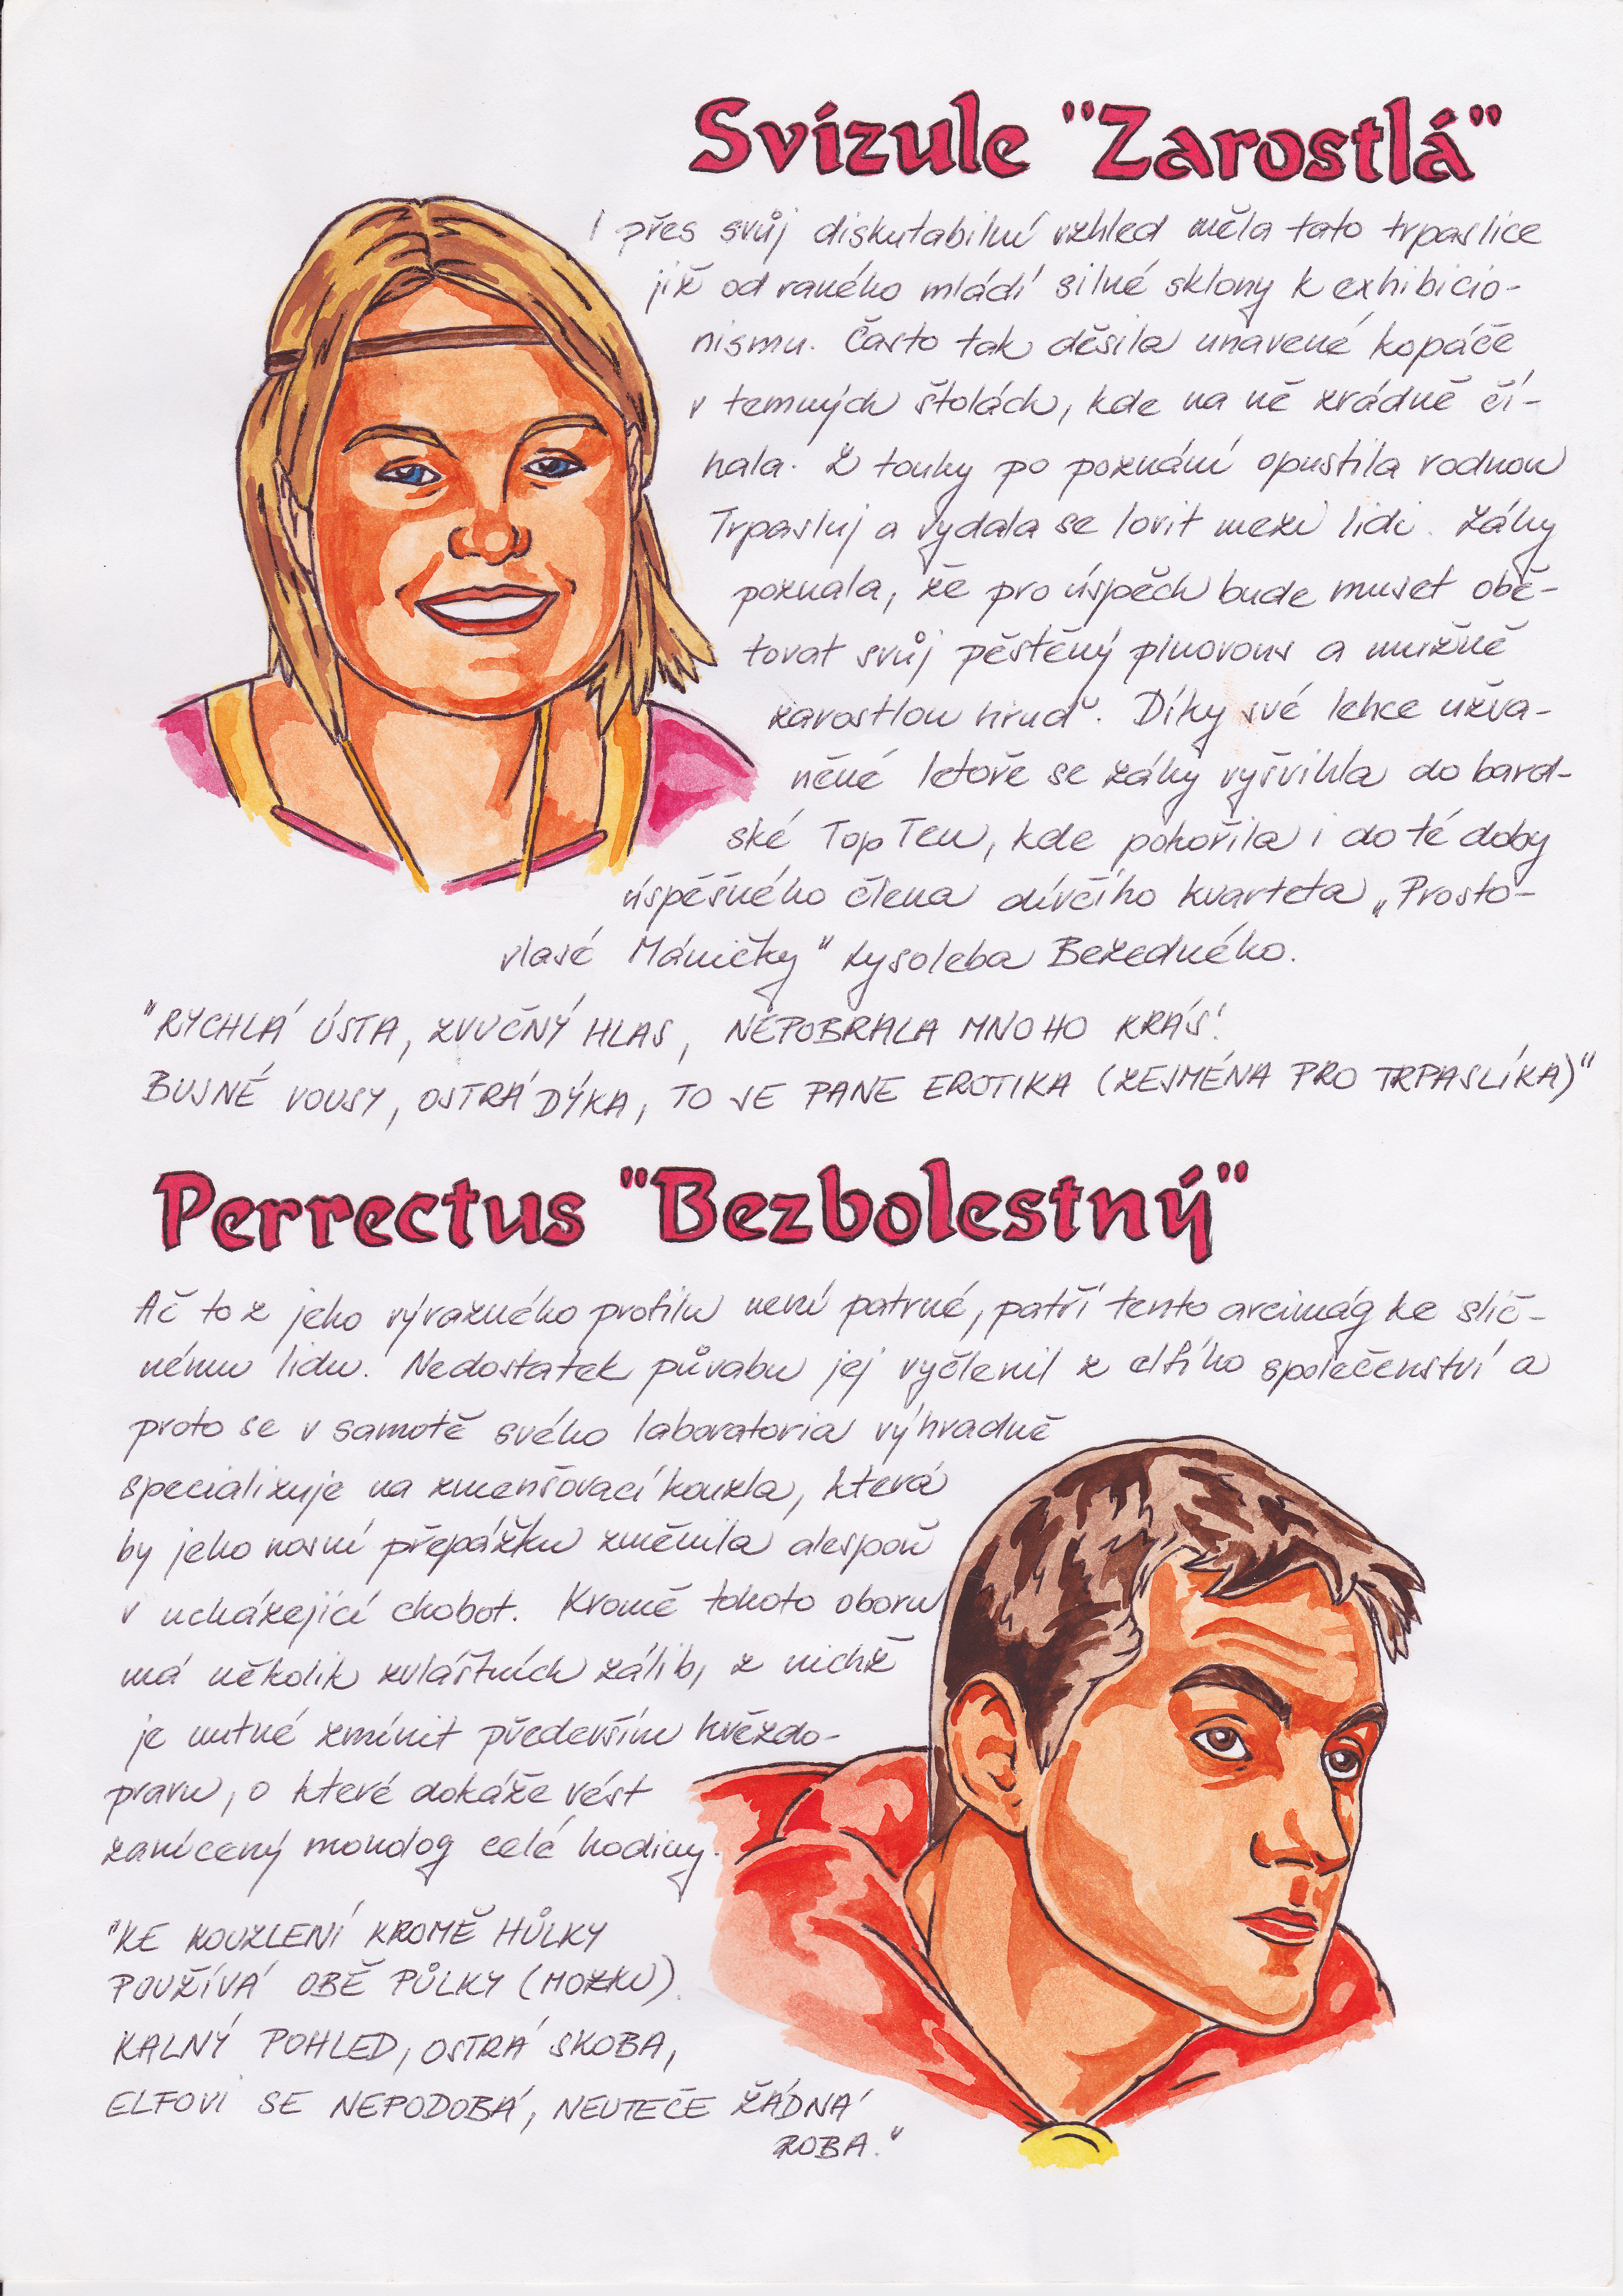 Svízule "Zarostlá"
I přes svůj diskutabilní vzhled měla tato trpaslice
již od raného mládí silné sklony k exhibicio-
nismu. Často tak děsila unavené kopáče
v temných štolách, kde na ně zrádně čí-
hala. Z touhy po poznání opustila rodnou
Trpasluj a vydala se lovit mezi lidi. Záhy
poznala, že pro úspěch bude muset obě-
tovat svůj pěstěný plnovous a mužně
zarostlou hruď. Díky své lehce užva-
něné letoře se záhy vyšvihla do bard-
ské Top Ten, kde pohořila i do té doby
úspěšného člena dívčího kvarteta „Prosto-
vlasé Máničky" Lysoleba Bezedného.
"RYCHLÁ ÚSTA, ZVUČNÝ HLAS, NEPOBRALA MNOHO KRÁS!
BUJNÉ VOUSY, OSTRÁ DÝKA, TO JE PANE EROTIKA (ZEJMÉNA PRO TRPASLÍKA)"
Perrectus "Bezbolestný"
Ač to z jeho výrazného profilu není patrné, patří tento arcimág ke slič-
nému lidu. Nedostatek půvabu jej vyčlenil z elfího společenství a
proto se v samotě svého laboratoria výhradně
specializuje na zmenšovací kouzla, která
by jeho nosní přepážku změnila alespoň
v ucházející chobot. Kromě tohoto oboru
má několik zvláštních zálib, z nichž
je nutné zmínit především hvězdo-
pravu, o které dokáže vést
zanícený monolog celé hodiny.
"KE KOUZLENÍ KROMĚ HŮLKY
POUŽÍVÁ OBĚ PŮLKY (MOZKU).
KALNÝ POHLED, OSTRÁ SKOBA,
ELFOVI SE NEPODOBÁ, NEUTEČE ŽÁDNÁ
ZOBA."